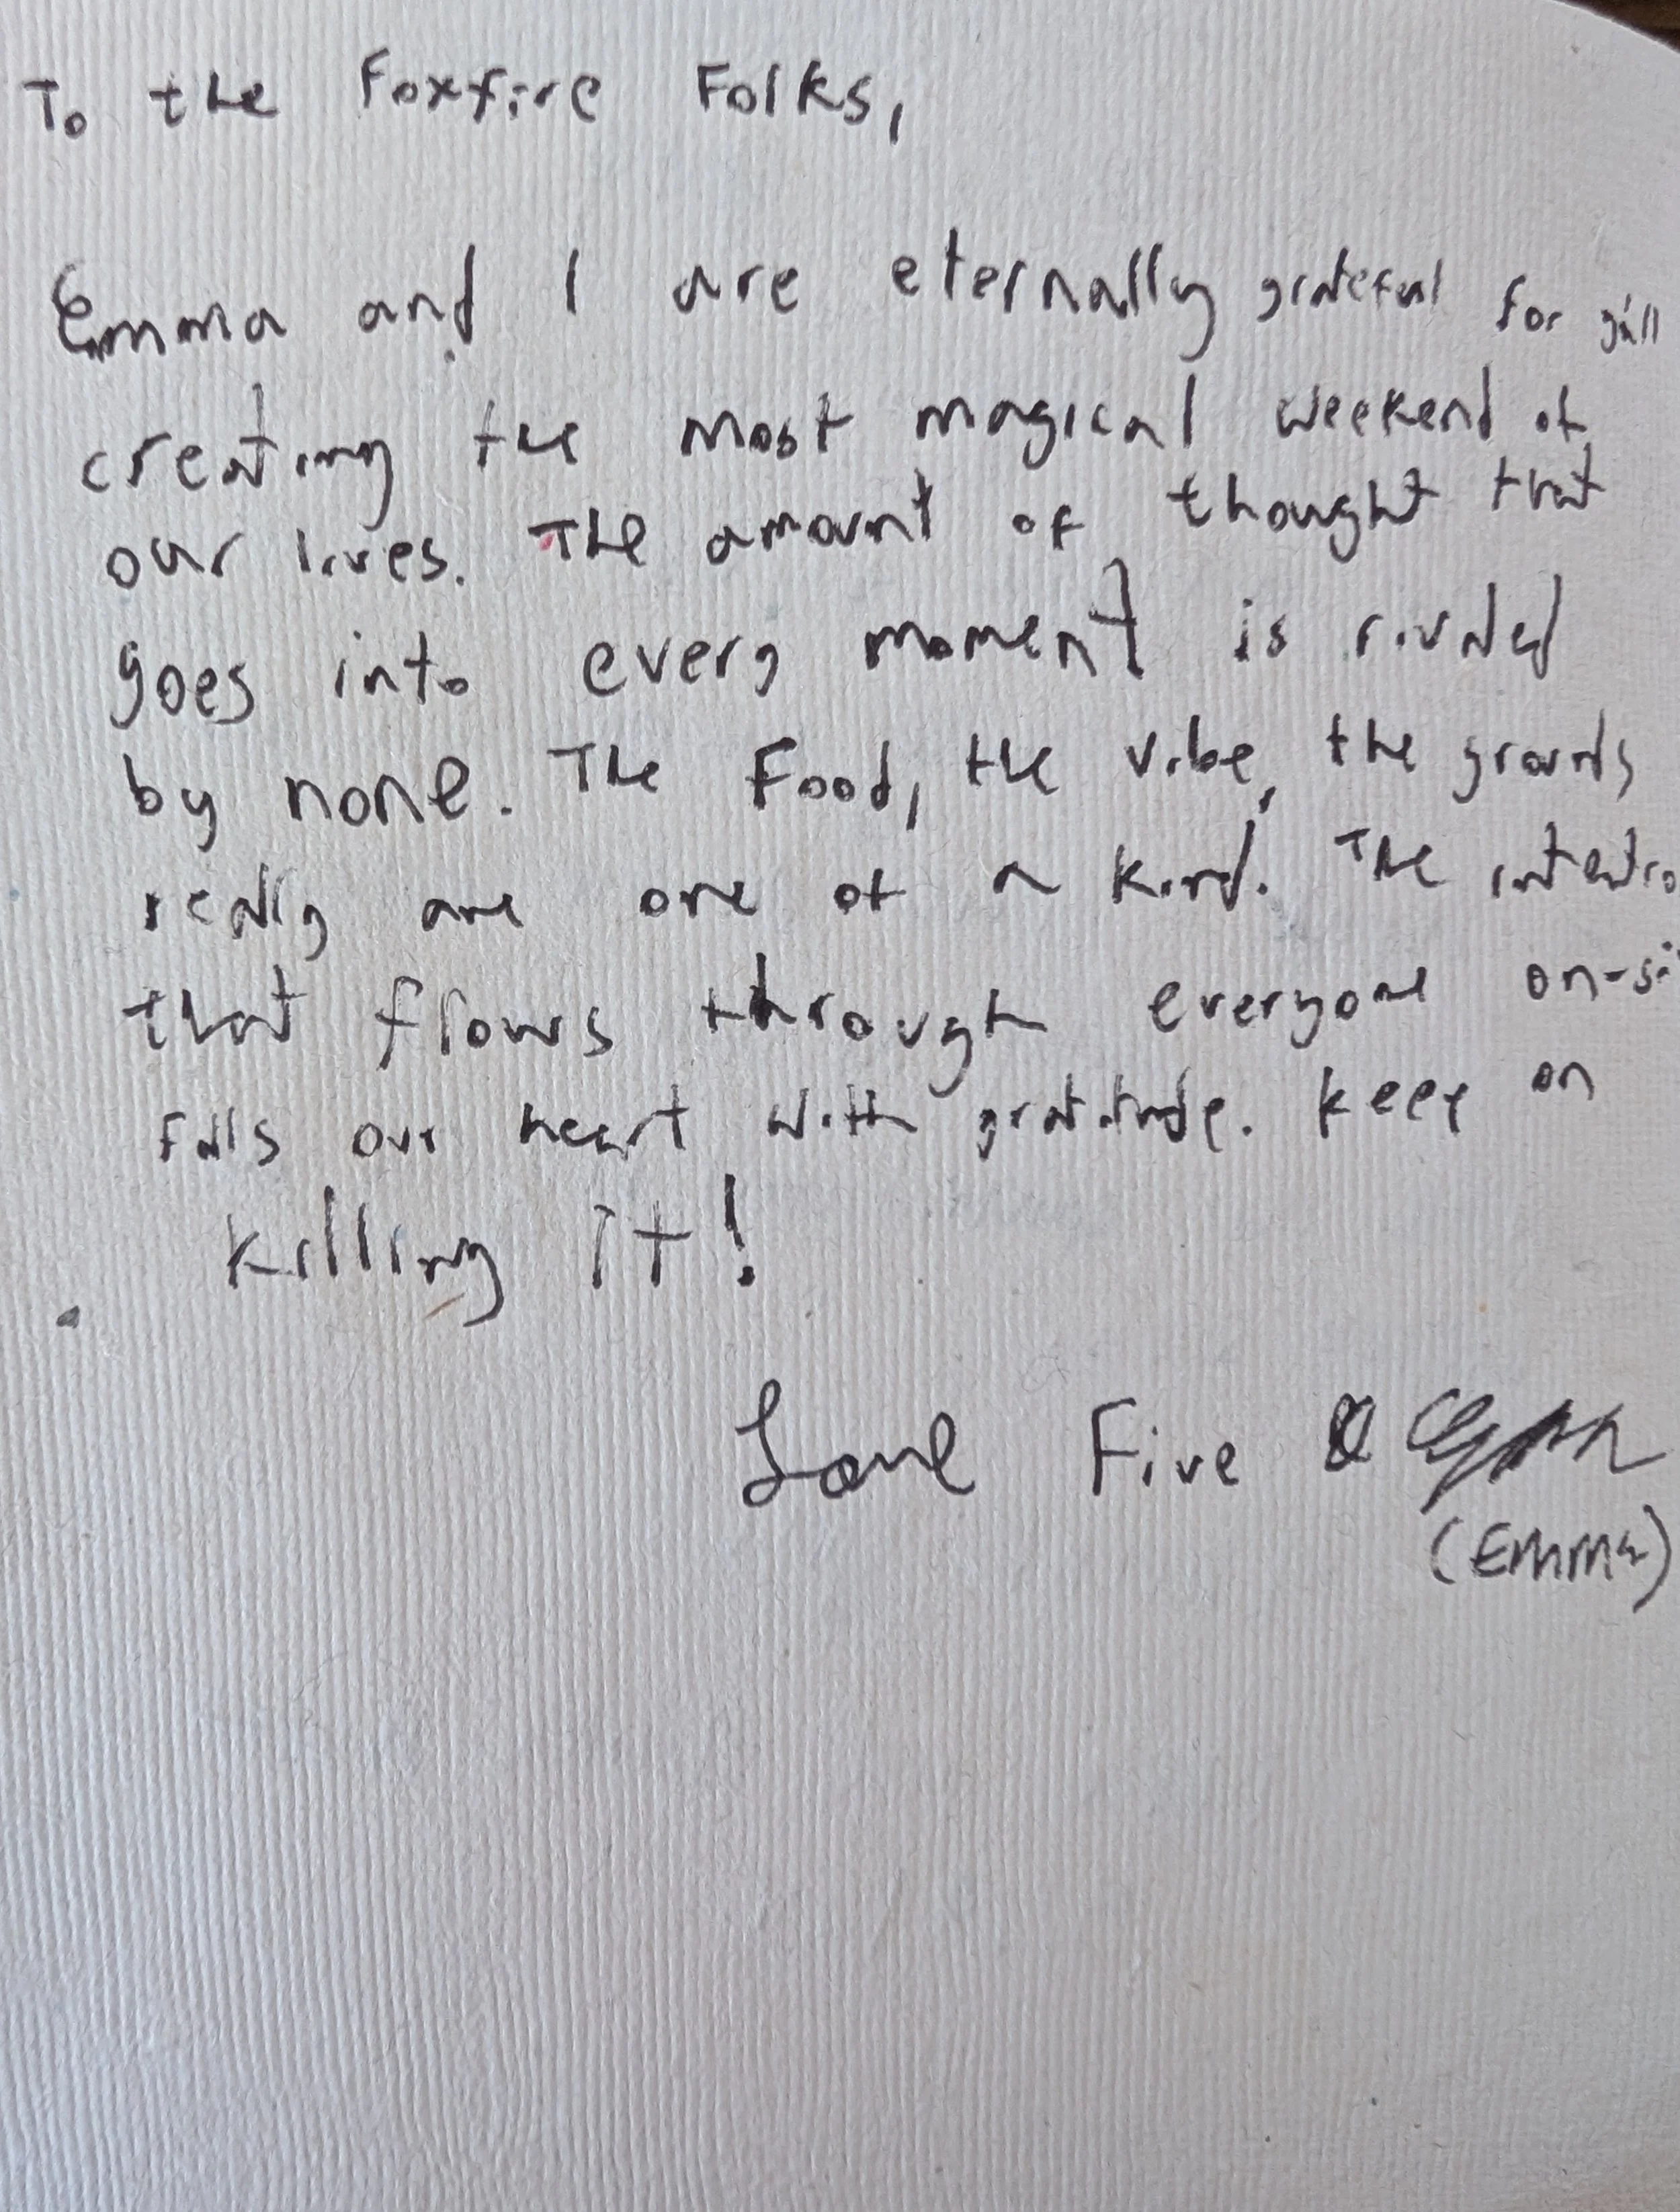 To the Foxfire Folks,
Emma and I are eternally grateful for y'all
creating the most magical weekend of
our lives. The amount of thought that
goes into every moment is rivaled
by none. The Food, the vibe, the grounds
really are one of a kind. The intentio
that flows through everyone on-si
fills our heart with gratitude. Keep on
killing it!
Love Five &
(Emma)